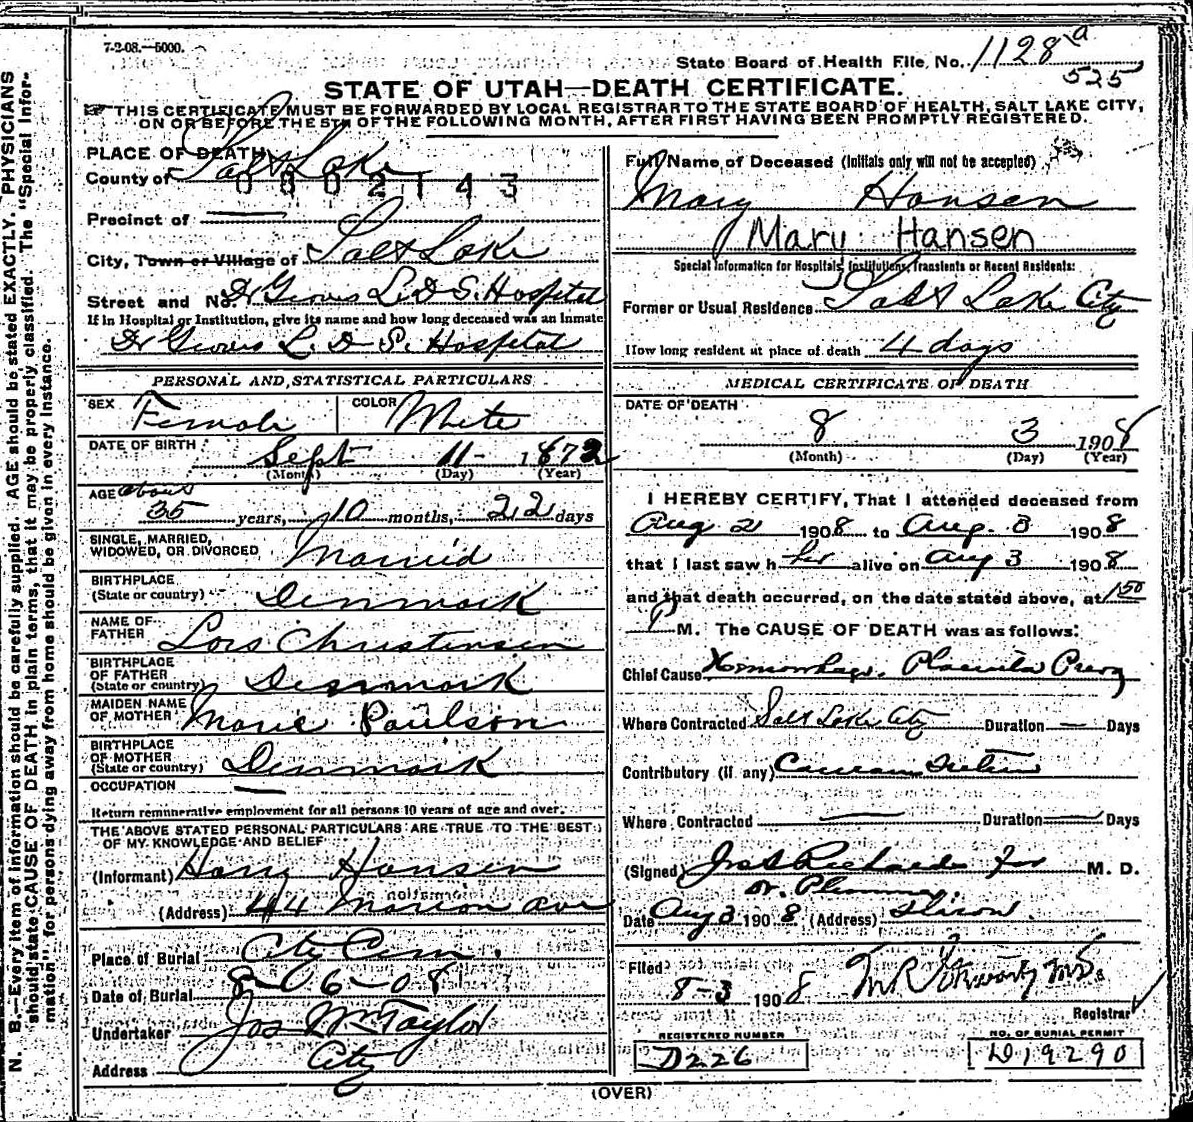 7-2-08.—5000.
State Board of Health File, No. 1128 a
525
STATE OF UTAH—DEATH CERTIFICATE.
THIS CERTIFICATE MUST BE FORWARDED BY LOCAL REGISTRAR TO THE STATE BOARD OF HEALTH, SALT LAKE CITY,
ON OR BEFORE THE 5TH OF THE FOLLOWING MONTH, AFTER FIRST HAVING BEEN PROMPTLY REGISTERED.
N. B.—Every item of information should be carefully supplied. AGE should be stated EXACTLY. PHYSICIANS
should state CAUSE OF DEATH in plain terms, that it may be properly classified. The "Special Infor-
mation" for persons dying away from home should be given in every instance.
PLACE OF DEATH
County of Salt Lake
0802143
Precinct of —
City, Town or Village of Salt Lake
Street and No. Dr Groves L.D.S. Hospital
If in Hospital or Institution, give its name and how long deceased was an inmate
Dr Groves L. D. S. Hospital
PERSONAL AND STATISTICAL PARTICULARS
SEX Female COLOR White
DATE OF BIRTH Sept 11- 1872
(Month) (Day) (Year)
AGE about
35 years, 10 months, 22 days
SINGLE, MARRIED,
WIDOWED, OR DIVORCED Married
BIRTHPLACE
(State or country) Denmark
NAME OF
FATHER Lors Christensen
BIRTHPLACE
OF FATHER
(State or country) Denmark
MAIDEN NAME
OF MOTHER Marie Paulson
BIRTHPLACE
OF MOTHER
(State or country) Denmark
OCCUPATION —
Return remunerative employment for all persons 10 years of age and over.
THE ABOVE STATED PERSONAL PARTICULARS ARE TRUE TO THE BEST
OF MY KNOWLEDGE AND BELIEF
(Informant) Harry Hansen
(Address) 44 Marion ave
Place of Burial City Cem.
Date of Burial 8-06-08
Undertaker Jos Wm Taylor
Address City
Full Name of Deceased (Initials only will not be accepted)
Mary Hansen
Mary Hansen
Special Information for Hospitals, Institutions, Transients or Recent Residents:
Former or Usual Residence Salt Lake City
How long resident at place of death 4 days
MEDICAL CERTIFICATE OF DEATH
DATE OF DEATH
8 3 1908
(Month) (Day) (Year)
I HEREBY CERTIFY, That I attended deceased from
Aug 2 1908 to Aug. 3 1908
that I last saw her alive on Aug 3 1908
and that death occurred, on the date stated above, at 1 50
P M. The CAUSE OF DEATH was as follows:
Chief Cause Hemorrhage. Placenta Previa
Where Contracted Salt Lake City Duration — Days
Contributory (if any) Section
Where Contracted — Duration — Days
(Signed) Richards for M. D.
Dr.
Date Aug 3 1908 (Address)
Filed 8-3 1908
Registrar
REGISTERED NUMBER
D226
NO. OF BURIAL PERMIT
D19290
(OVER)